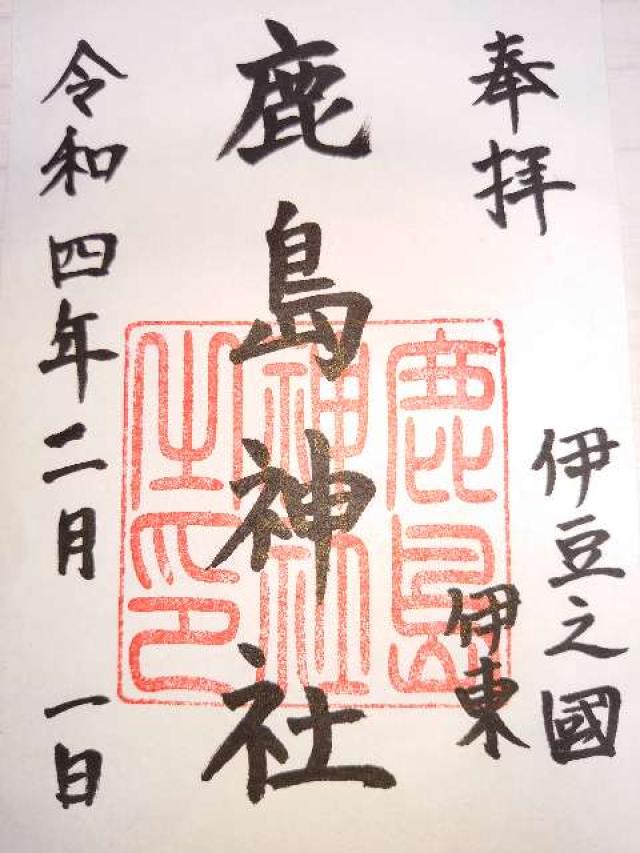 奉拝
伊豆之國
伊東
鹿島神社
鹿島
神社
之印
令和四年二月一日